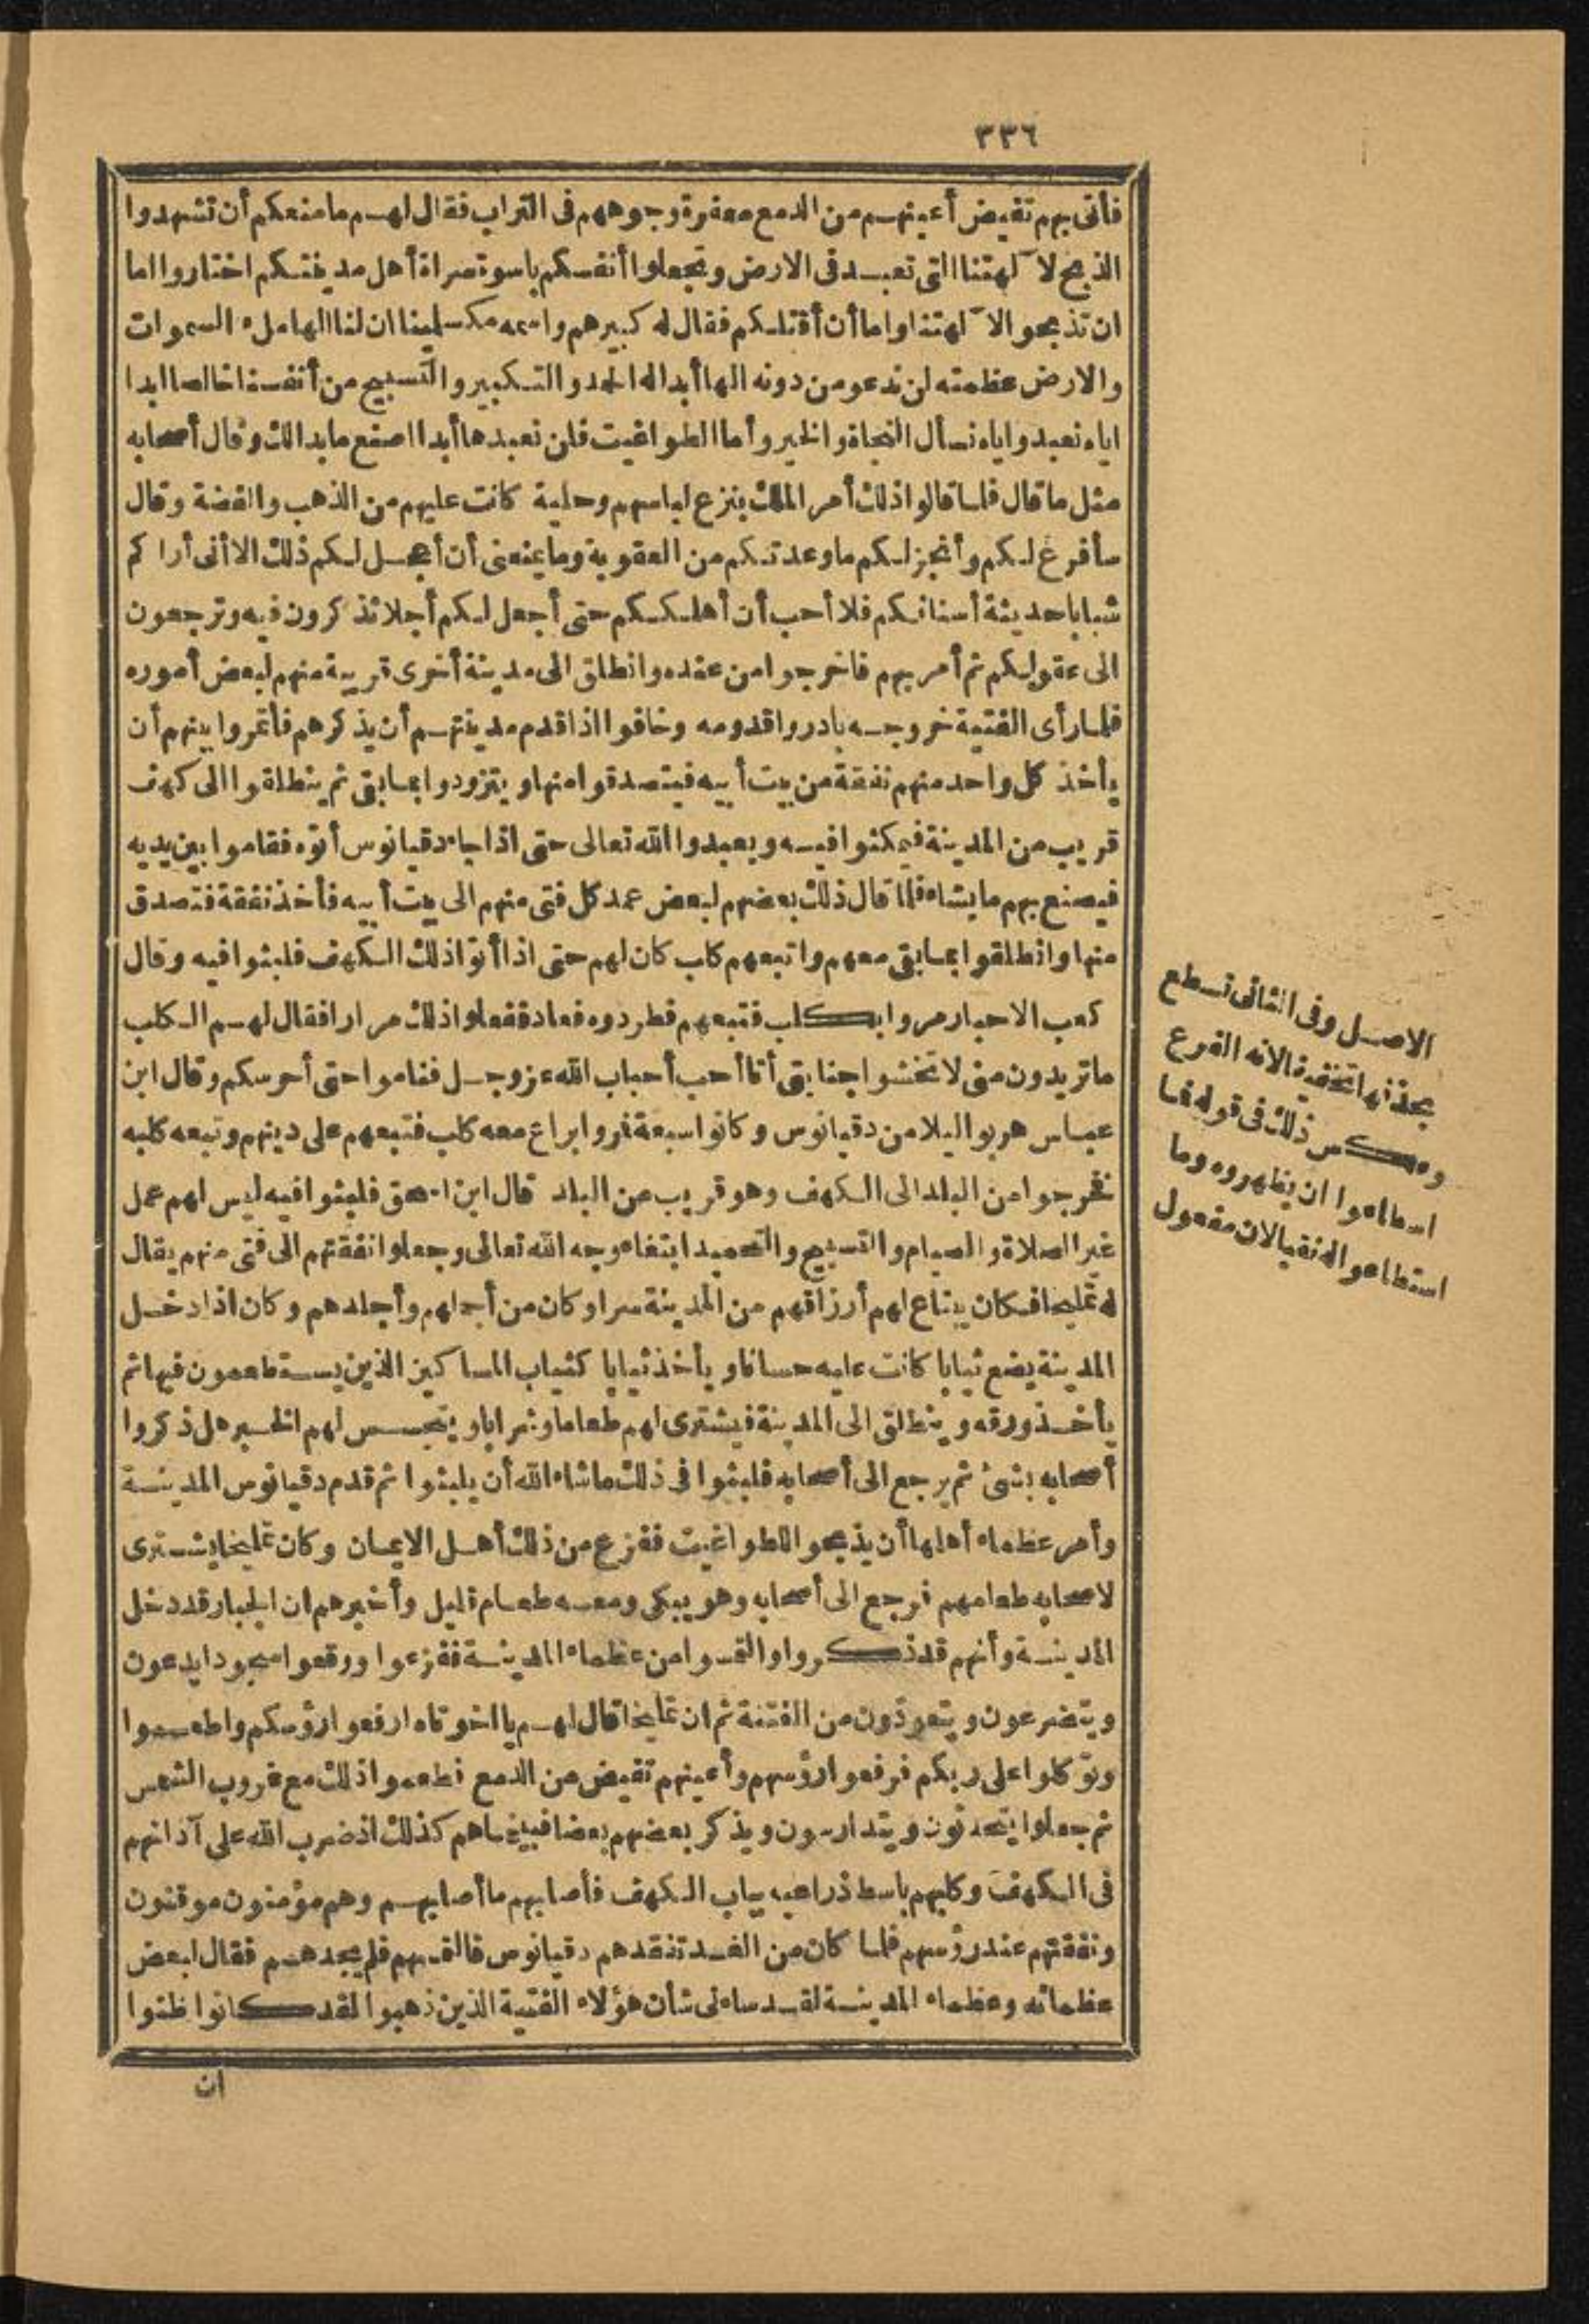 ٣٣٦
فأتى بهم تفيض أعينهم من الدمع معفرة وجوههم فى التراب فقال لهم ما منعكم أن تشهدوا
الذبح لآلهتنا التى تعبد فى الارض وتجعلوا أنفسكم باسوة سراة أهل مدينتكم اختاروا اما
ان تذبحوا لآلهتنا واما أن أقتلكم فقال له كبيرهم واسمه مكسلمينا ان لنا الها ملء السموات
والارض عظمته لن ندعو من دونه الها أبدا له الحمد والتكبير والتسبيح من أنفسنا خالصا ابدا
اياه نعبد واياه نسأل النجاة والخير وأما الطواغيت فلن نعبدها أبدا اصنع ما بدا لك وقال أصحابه
مثل ما قال فلما قالوا ذلك أمر الملك بنزع لباسهم وحلية كانت عليهم من الذهب والفضة وقال
سأفرغ لكم وأنجز لكم ما وعدتكم من العقوبة وما يمنعنى أن أعجل لكم ذلك الا أنى أراكم
شبابا حديثة أسنانكم فلا أحب أن أهلككم حتى أجعل لكم أجلا تذكرون فيه وترجعون
الى عقولكم ثم أمر بهم فاخرجوا من عنده وانطلق الى مدينة أخرى قريبة منهم لبعض أموره
فلما رأى الفتية خروجه بادروا قدومه وخافوا اذا قدم مدينتهم أن يذكرهم فأتمروا بينهم أن
يأخذ كل واحد منهم نفقة من بيت أبيه فيتصدقوا منها ويتزودوا بما بقى ثم ينطلقوا الى كهف
قريب من المدينة فيمكثوا فيه ويعبدوا الله تعالى حتى اذا جاء دقيانوس أتوه فقاموا بين يديه
فيصنع بهم ما يشاء فلما قال ذلك بعضهم لبعض عمد كل فتى منهم الى بيت أبيه فأخذ نفقة فتصدق
منها وانطلقوا بما بقى معهم واتبعهم كلب كان لهم حتى اذا أتوا ذلك الكهف فلبثوا فيه وقال
كعب الاحبار مروا بكلب فتبعهم فطردوه فعاد ففعلوا ذلك مرارا فقال لهم الكلب
ما تريدون منى لا تخشوا جنابتى أنا أحب أحباب الله عز وجل فقاموا حتى أحرسكم وقال ابن
عباس هربوا ليلا من دقيانوس وكانوا سبعة فمروا براع معه كلب فتبعهم على دينهم وتبعه كلبه
فخرجوا من البلد الى الكهف وهو قريب من البلد قال ابن اسحق فلبثوا فيه ليس لهم عمل
غير الصلاة والصيام والتسبيح والتحميد ابتغاء وجه الله تعالى وجعلوا نفقتهم الى فتى منهم يقال
له تمليخا فكان يبتاع لهم أرزاقهم من المدينة سرا وكان من أجملهم وأجلدهم وكان اذا دخل
المدينة يضع ثيابا كانت عليه حسانا ويأخذ ثيابا كثياب المساكين الذين يستطعمون فيها ثم
يأخذ ورقه وينطلق الى المدينة فيشترى لهم طعاما وشرابا ويتجسس لهم الخبر هل ذكروا
أصحابه بشئ ثم يرجع الى أصحابه فلبثوا فى ذلك ما شاء الله أن يلبثوا ثم قدم دقيانوس المدينة
وأمر عظماء أهلها أن يذبحوا للطواغيت ففزع من ذلك أهل الايمان وكان تمليخا يشترى
لاصحابه طعامهم فرجع الى أصحابه وهو يبكى ومعه طعام قليل وأخبرهم ان الجبار قد دخل
المدينة وأنهم قد ذكروا والتمسوا من عظماء المدينة ففزعوا ووقعوا سجودا يدعون
ويتضرعون ويتعوذون من الفتنة ثم ان تمليخا قال لهم يا اخوتاه ارفعوا رؤسكم واطعموا
وتوكلوا على ربكم فرفعوا رؤسهم وأعينهم تفيض من الدمع فطعموا ذلك مع غروب الشمس
ثم جعلوا يتحدثون ويتدارسون ويذكر بعضهم بعضا فبينما هم كذلك اذ ضرب الله على آذانهم
فى الكهف وكلبهم باسط ذراعيه بباب الكهف فأصابهم ما أصابهم وهم مؤمنون موقنون
ونفقتهم عند رؤسهم فلما كان من الغد تفقدهم دقيانوس فالتمسهم فلم يجدهم فقال لبعض
عظمائه وعظماء المدينة لقد ساءنى شأن هؤلاء الفتية الذين ذهبوا لقد كانوا ظنوا
ان
الاصل وفى الثانى تسطع
بحذفها تخفيفا لانه الفرع
وعكس ذلك فى قوله فما
اسطاعوا ان يظهروه وما
استطاعوا له نقبا لان مفعول